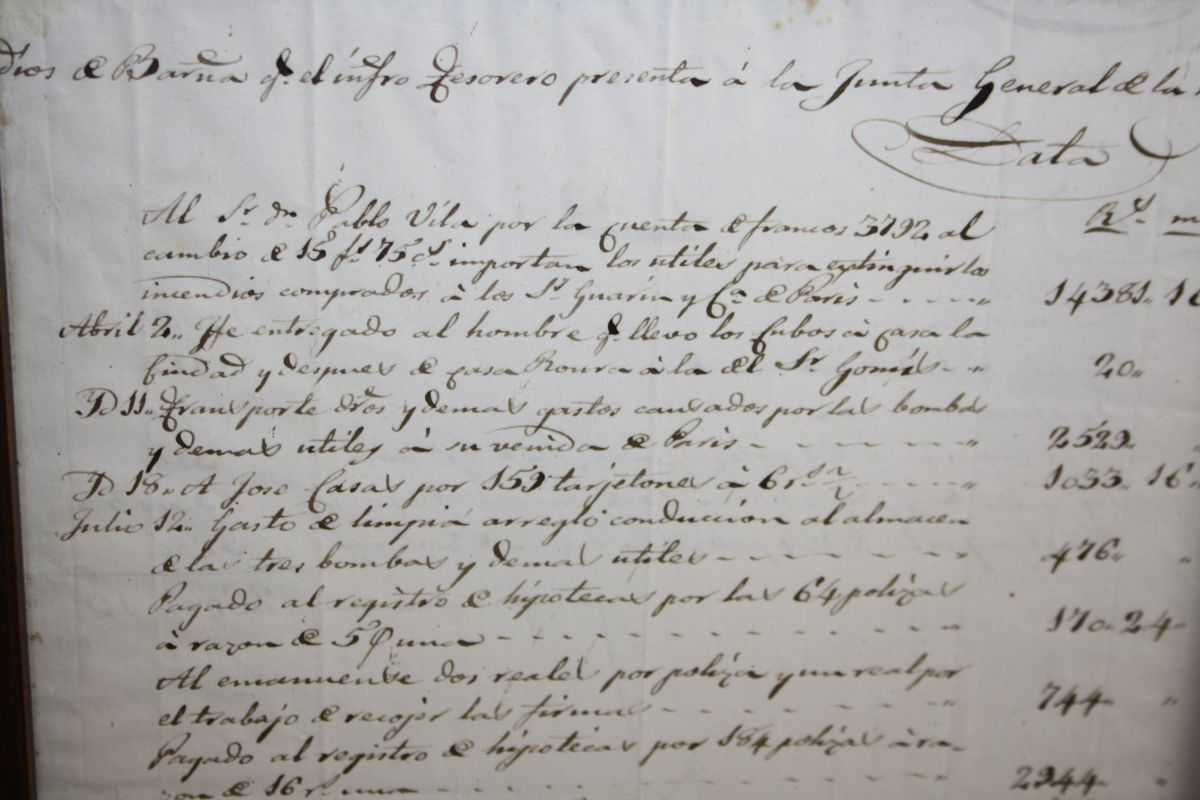 dios de Barna. q.e el infro. Tesorero presenta á la Junta General de la
Data
R.s m
Al S.r dn. Pablo Vila por la cuenta de francos 3792 al
cambio de 15 f.s 75 c.s importan los utiles para extinguir los
incendios comprados à los S.s Guarin y C.a de Paris - - - - - " 14381 " 16
Abril 2 " He entregado al hombre q.e llevo los Cubos à casa la
Ciudad y despues de casa Roura à la del S.r Gomis - - " 20 "
Id 11 " Transporte dros. y demas gastos causados por las bombas
y demas utiles à su venida de Paris - - - - - - - " 2529 "
Id 18 " A Jose Casas por 159 tarjetones à 6 r.s ½ - - - - - " 1033 " 16 "
Julio 12 " Gasto de limpia arreglo conducción al almacen
de las tres bombas y demas utiles - - - - - - - " 476 " "
Pagado al registro de hipotecas por las 64 polizas
à razon de una - - - - - - - - - - - - " 170 " 24 "
Al emanuense dos reales por poliza y un real por
el trabajo de recojer las firmas - - - - - - - - " 744 " "
Pagado al registro de hipotecas por 184 polizas à ra-
zon de 16 r.s una - - - - - - - - 2944 " "